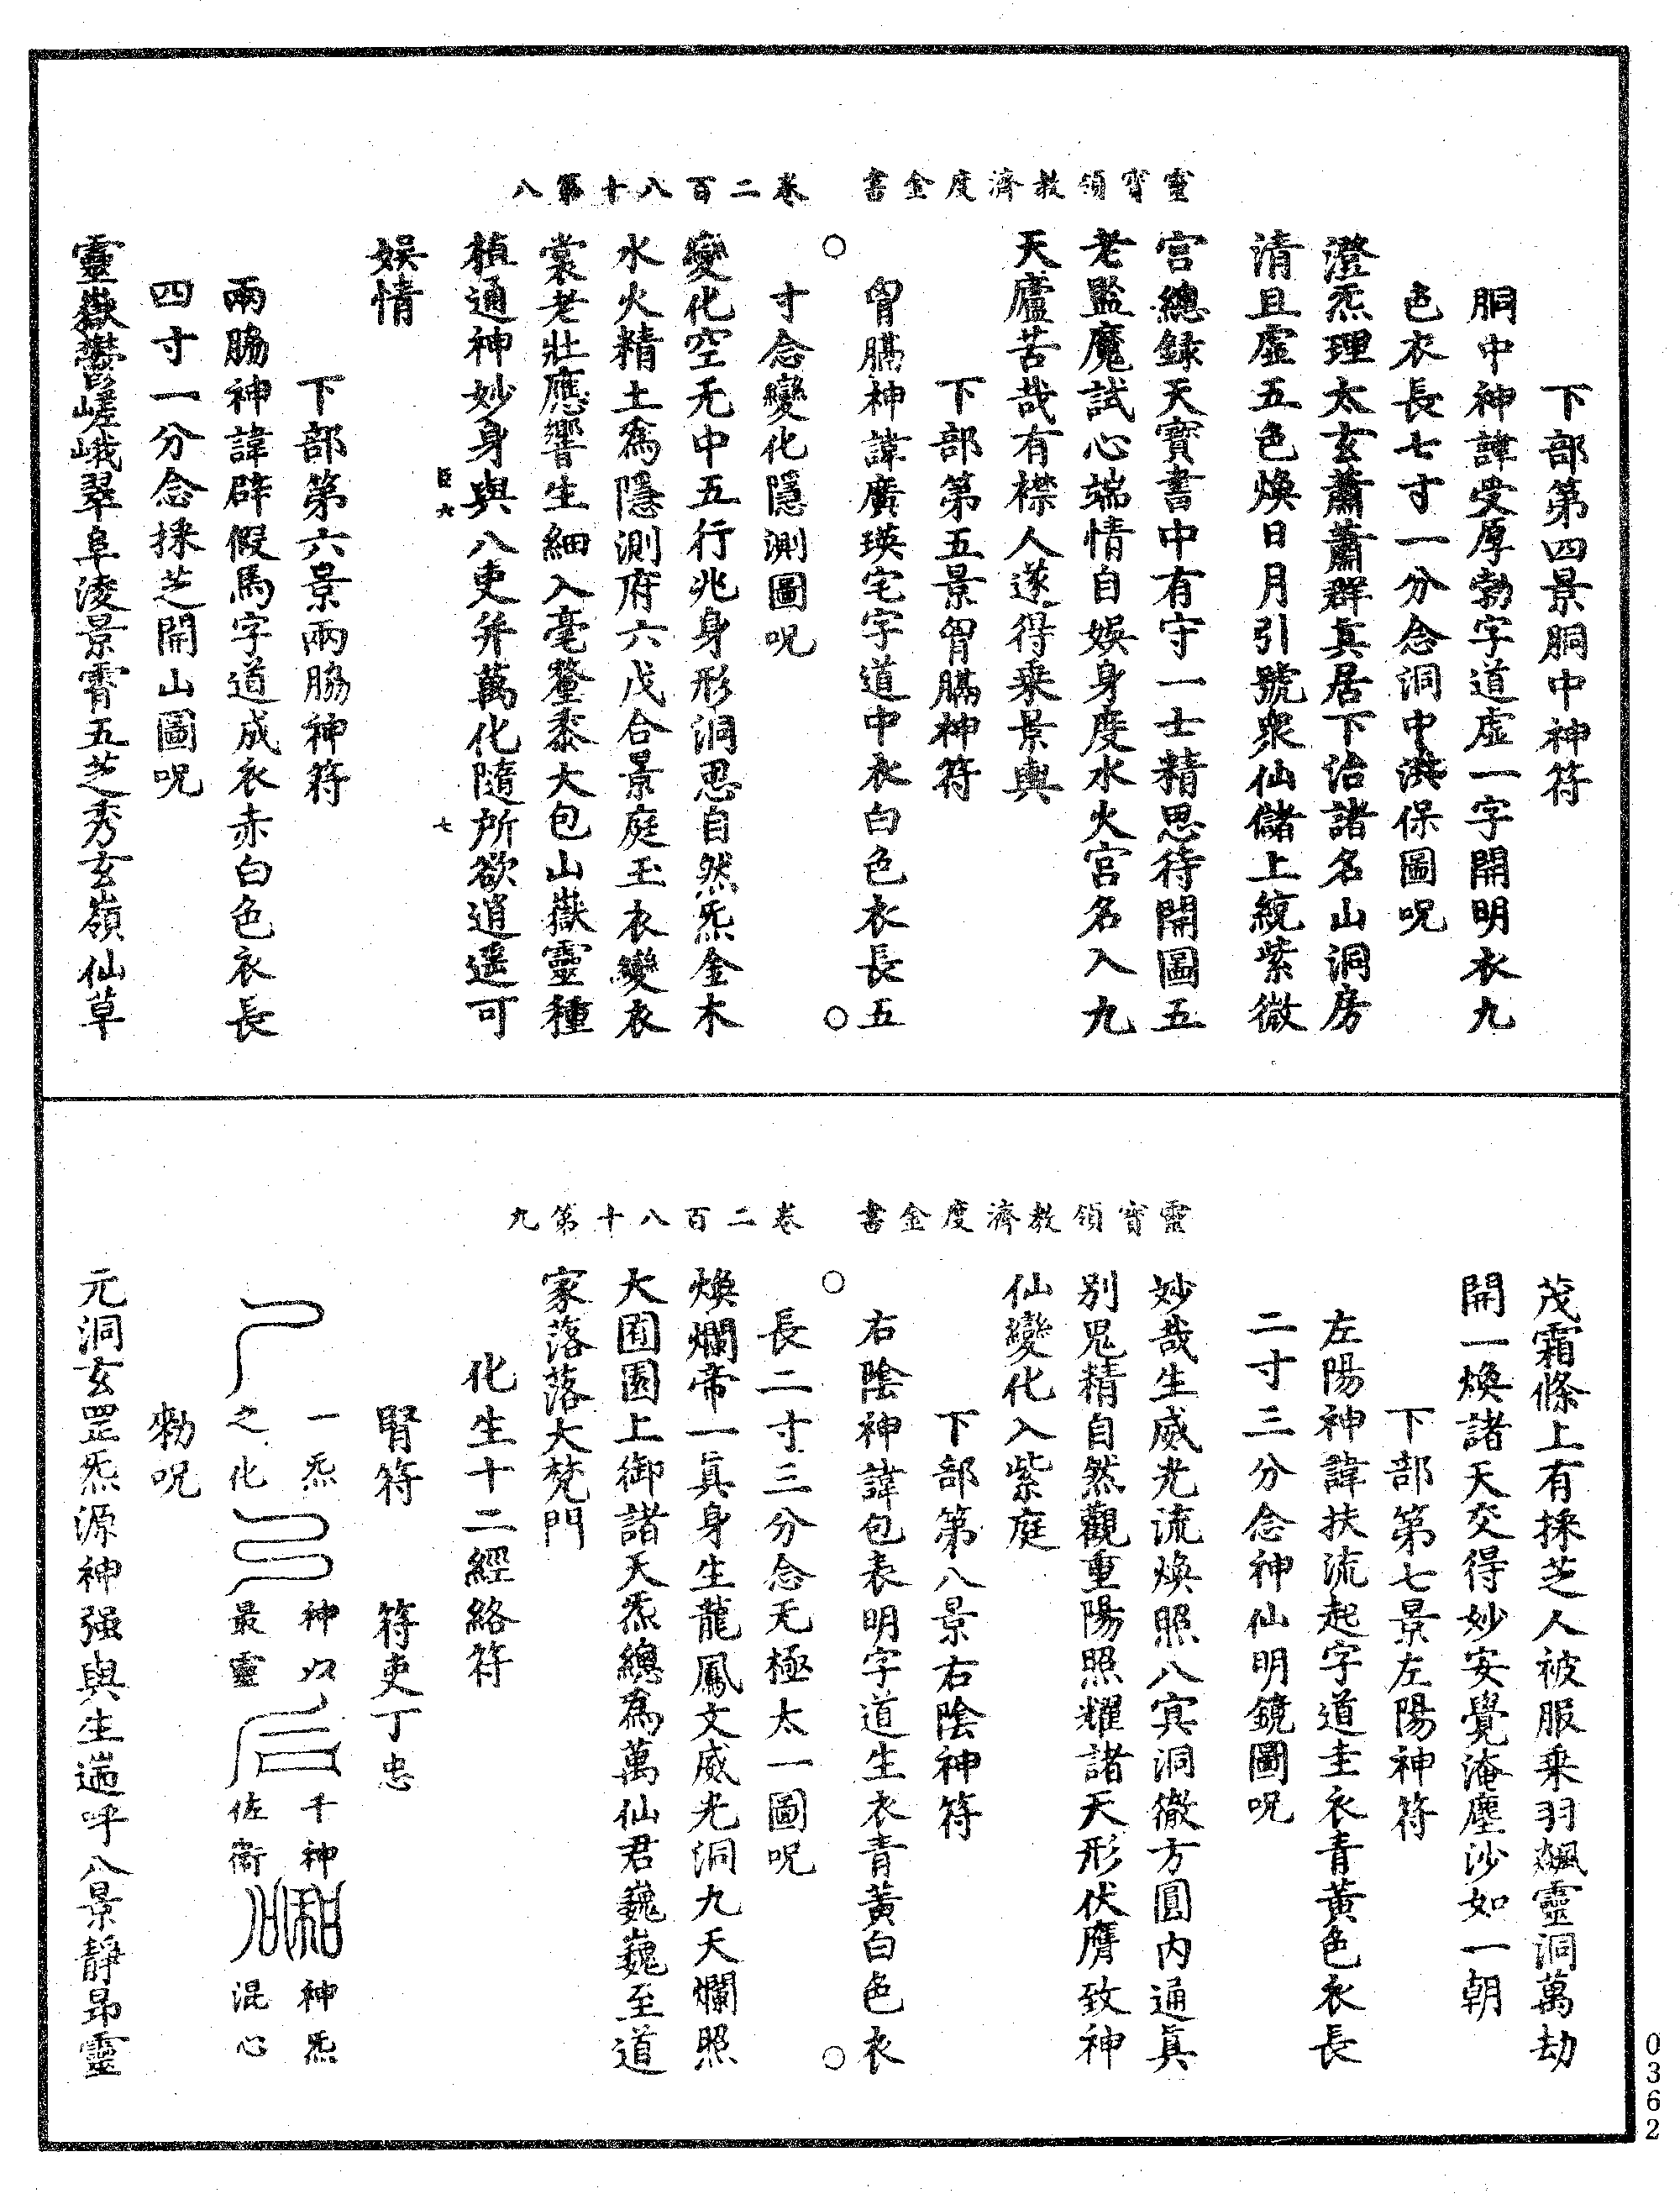 靈寳領教濟度金書　卷二百八十第八
下部第四景胴中神符
胴中神諱受厚勃字道虛一字開明衣九
色衣長七寸一分念洞中洪保圖呪
澄炁理太玄蕭蕭群眞居下治諸名山洞房
清且虛五色煥日月引號衆仙儲上統紫微
宮總錄天寶書中有守一士精思待開圖五
老監魔試心端情自娛身度水火宮名入九
天廬苦哉有襟人遂得乗景輿
下部第五景胷膈神符
胷膈神諱廣瑛宅字道中衣白色衣長五
寸念變化隱測圖呪
變化空无中五行兆身形洞思自然炁金木
水火精土爲隱測府六戊合景庭玉衣變衣
裳老壯應響生細入毫釐黍大包山嶽靈種
植通神妙身與八吏并萬化隨所欲逍遥可
臣六　七
娛情
下部第六景兩脇神符
兩脇神諱辟假馬字道成衣赤白色衣長
四寸一分念採芝開山圖呪
靈嶽鬱嵯峨翠阜凌景霄五芝秀玄嶺仙草
靈寳領教濟度金書　卷二百八十第九
茂霜條上有採芝人被服乗羽飈靈洞萬劫
開一煥諸天交得妙安覺淹塵沙如一朝
下部第七景左陽神符
左陽神諱扶流起字道圭衣青黃色衣長
二寸三分念神仙明鏡圖呪
妙哉生威光流煥照八寞洞徹方圓內通眞
別鬼精自然觀重陽照耀諸天形伏膺致神
仙變化入紫庭
下部第八景右陰神符
右陰神諱包表明字道生衣青黃白色衣
長二寸三分念无極太一圖呪
煥爛帝一眞身生龍鳳文威光洞九天爛照
大囿園上御諸天炁總爲萬仙君巍巍至道
家落落大梵門
化生十二經絡符
腎符　符吏丁忠
一炁　神以　千神　神炁
之化　最靈　佐衞　混心
勑呪
元洞玄罡炁源神强與生遄呼八景靜昻靈
0362